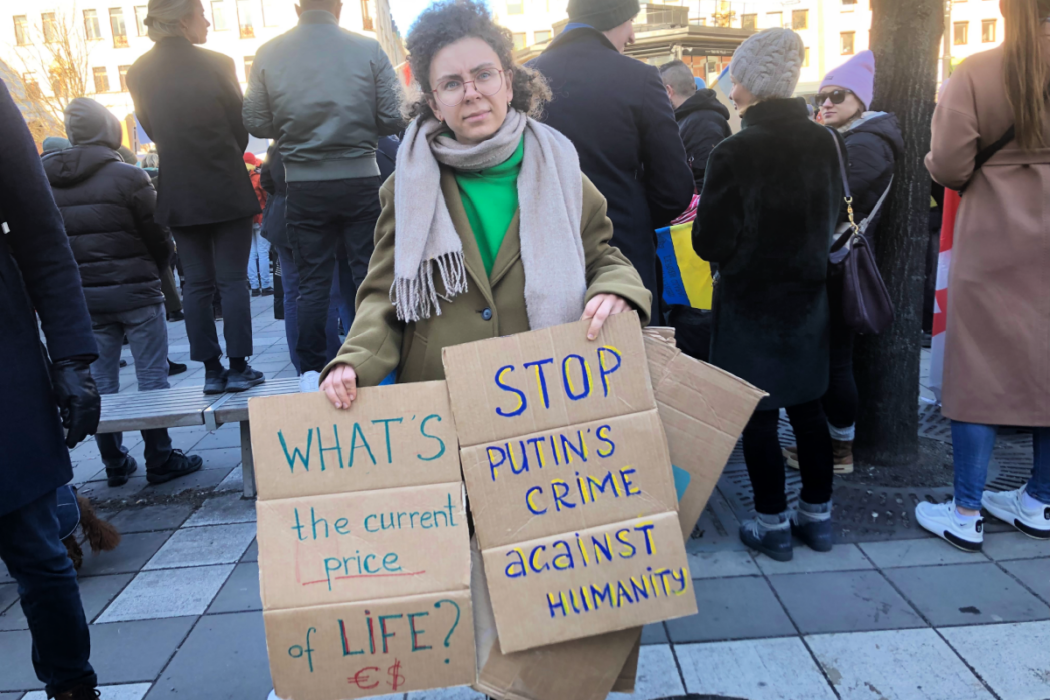 WHAT'S
the current
price
of LiFE?
€$
STOP
PUTIN'S
CRiME
against
HUMANiTY